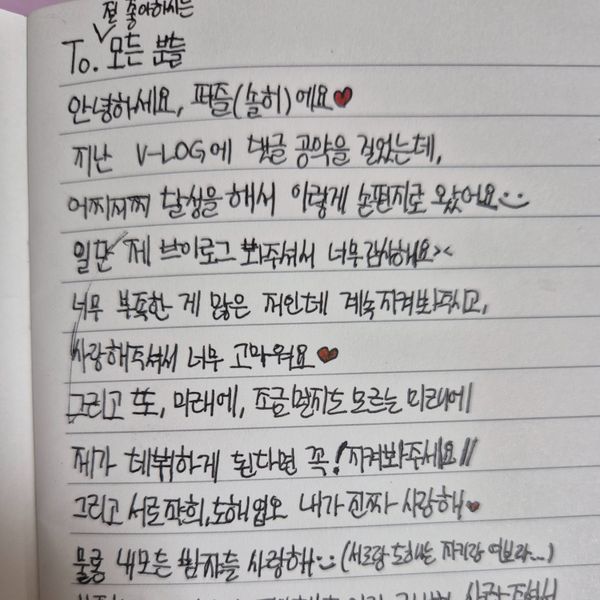 전 좋아하시는
To. 모든 분들
안녕하세요, 퍼즐(솔허)에요♥
지난 V-LOG에 댓글 공약을 걸었는데,
어찌저찌 달성을 해서 이렇게 손편지로 왔어요
일단 제 브이로그 봐주셔서 너무 감사해요><
너무 부족한 게 많은 저인데 계속 지켜봐주시고,
사랑해주셔서 너무 고마워요♥
그리고 또, 미래에, 조금 멀지도 모르는 미래에
제가 데뷔하게 된다면 꼭! 지켜봐주세요!!
그리고 서로작희, 도해엽오 내가 진짜 사랑해♥
물론 내 모든 팀자들 사랑해 (서로랑 도해는 자기랑 여보라...)